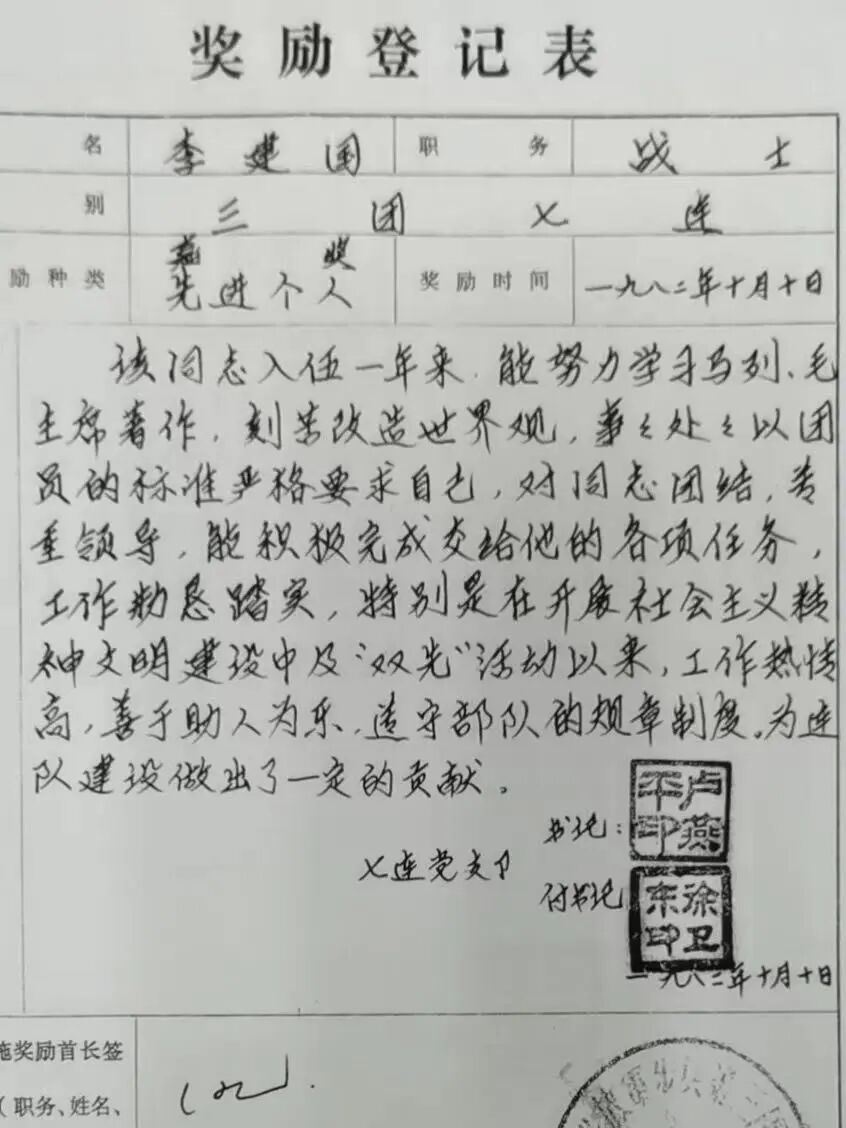 奖励登记表
名 李建国 职务 战士
别 三团七连
嘉奖
励种类 先进个人 奖励时间 一九八二年十月十日
该同志入伍一年来.能努力学习马列、毛
主席著作,刻苦改造世界观,事々处々以团
员的标准严格要求自己,对同志团结,尊
重领导,能积极完成交给他的各项任务,
工作勤恳踏实,特别是在开展社会主义精
神文明建设中及“双先”活动以来,工作热情
高,善于助人为乐,遵守部队的规章制度。为连
队建设做出了一定的贡献。
书记: 卢燕平印
七连党支卩
付书记 徐卫东印
一九八二年十月十日
施奖励首长签
(职务、姓名、